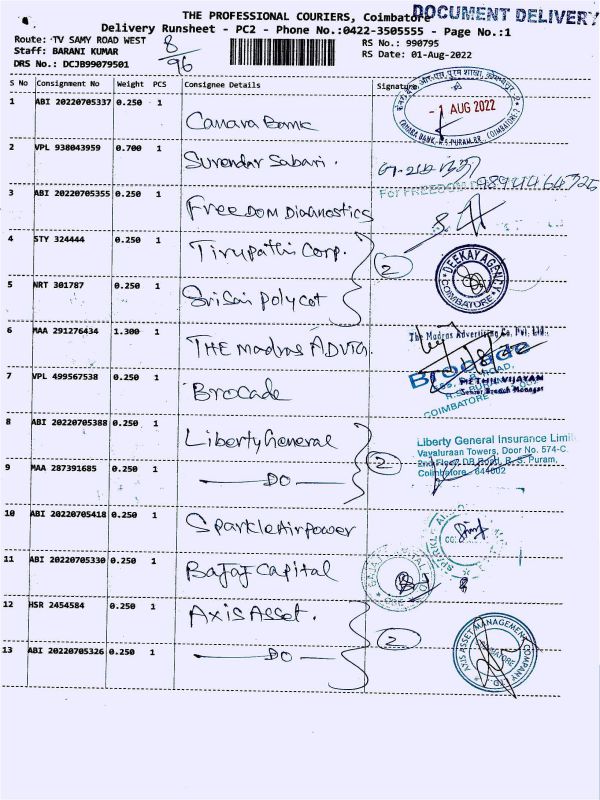 THE PROFESSIONAL COURIERS, Coimbatore
DOCUMENT DELIVERY
Delivery Runsheet - PC2 - Phone No.:0422-3505555 - Page No.:1
Route: TV SAMY ROAD WEST
8/96
RS No.: 990795
Staff: BARANI KUMAR
RS Date: 01-Aug-2022
DRS No.: DCJB99079501
S No Consignment No Weight PCS Consignee Details Signature
1 ABI 20220705337 0.250 1 Canara Bank
- 1 AUG 2022
CANARA BANK, R.S. PURAM BR. COIMBATORE-2
2 VPL 938043959 0.700 1 Surendar Sabari.
3 ABI 20220705355 0.250 1 FreeDom Diagnostics
For FREEDOM
4 STY 324444 0.250 1 Tirupathi Corp.
2
DEEKAY AGENCY
COIMBATORE
5 NRT 301787 0.250 1 Sri Sai Polycot
6 MAA 291276434 1.300 1 THE Madras ADVTG.
The Madras Advertising Co. Pvt. Ltd.,
7 VPL 499567538 0.250 1 BroCade
Brocade
NETHIL VIJAYAN
Senior Branch Manager
COIMBATORE
8 ABI 20220705388 0.250 1 Liberty General
2
Liberty General Insurance Limit
Vayaluraan Towers, Door No. 574-C
2nd Floor, DB Road, R. S. Puram,
Coimbatore - 641002
9 MAA 287391685 0.250 1 — DO —
10 ABI 20220705418 0.250 1 Sparkle Airpower
11 ABI 20220705330 0.250 1 Bajaj Capital
12 HSR 2454584 0.250 1 Axis Asset.
2
AXIS ASSET MANAGEMENT COMPANY LTD.
COIMBATORE
13 ABI 20220705326 0.250 1 — DO —